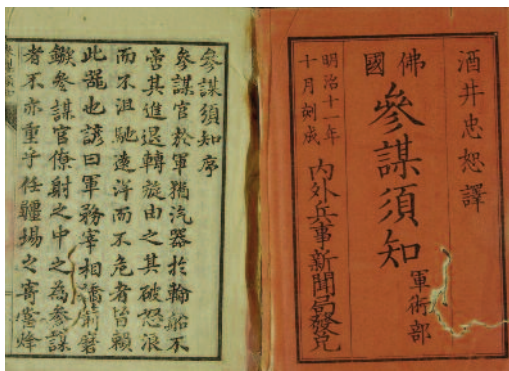 酒井忠恕譯
佛國
參謀須知 軍術部
明治十一年
十月刻成
內外兵事新聞局發兌
參謀須知序
參謀官於軍猶汽器於輪船不
啻其進退轉旋由之其破怒浪
而不沮馳遠洋而不危者皆賴
此器也諺曰軍務宰相矯箭磨
鏃參謀官僚射之中之為參謀
者不亦重乎任疆場之寄當烽